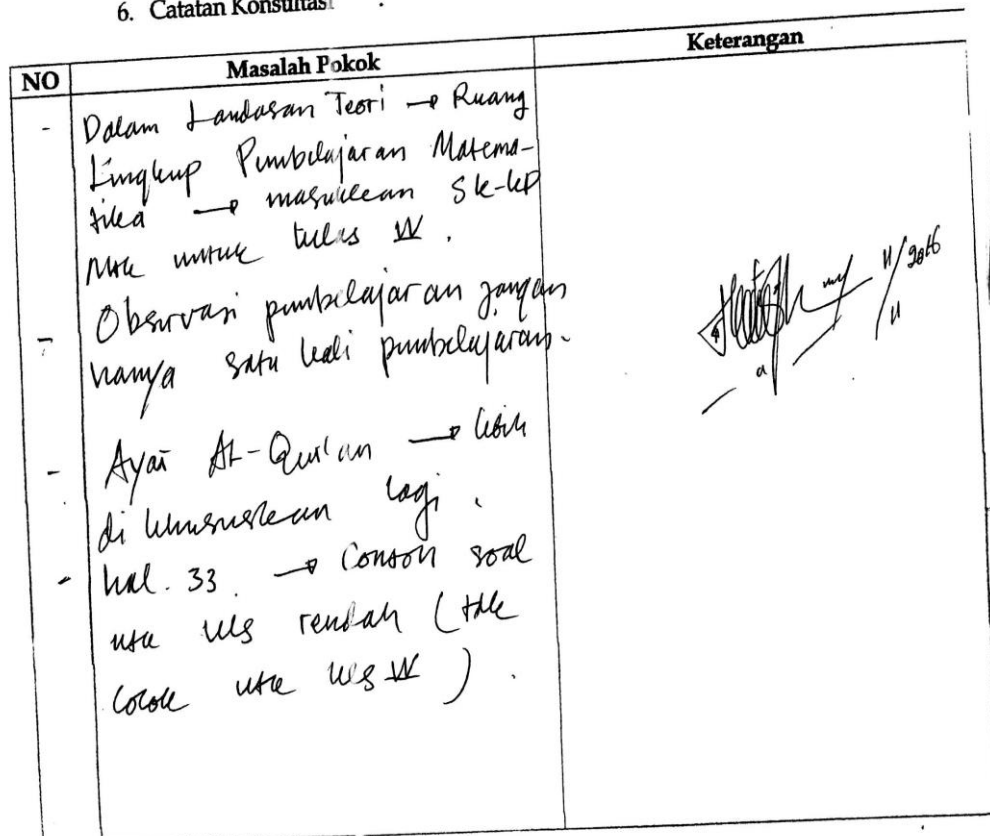 6. Catatan Konsultasi
NO
Masalah Pokok
Keterangan
- Dalam Landasan Teori → Ruang
Lingkup Pembelajaran Matema-
tika → masukkan SK-KD
Mtk untuk kelas IV.
- Observasi pembelajaran jangan
hanya satu kali pembelajaran.
- Ayat Al-Qur'an → lebih
di khususkan lagi.
- hal. 33. → Contoh soal
utk kls rendah (tdk
cocok utk kls IV).
11/2016
11